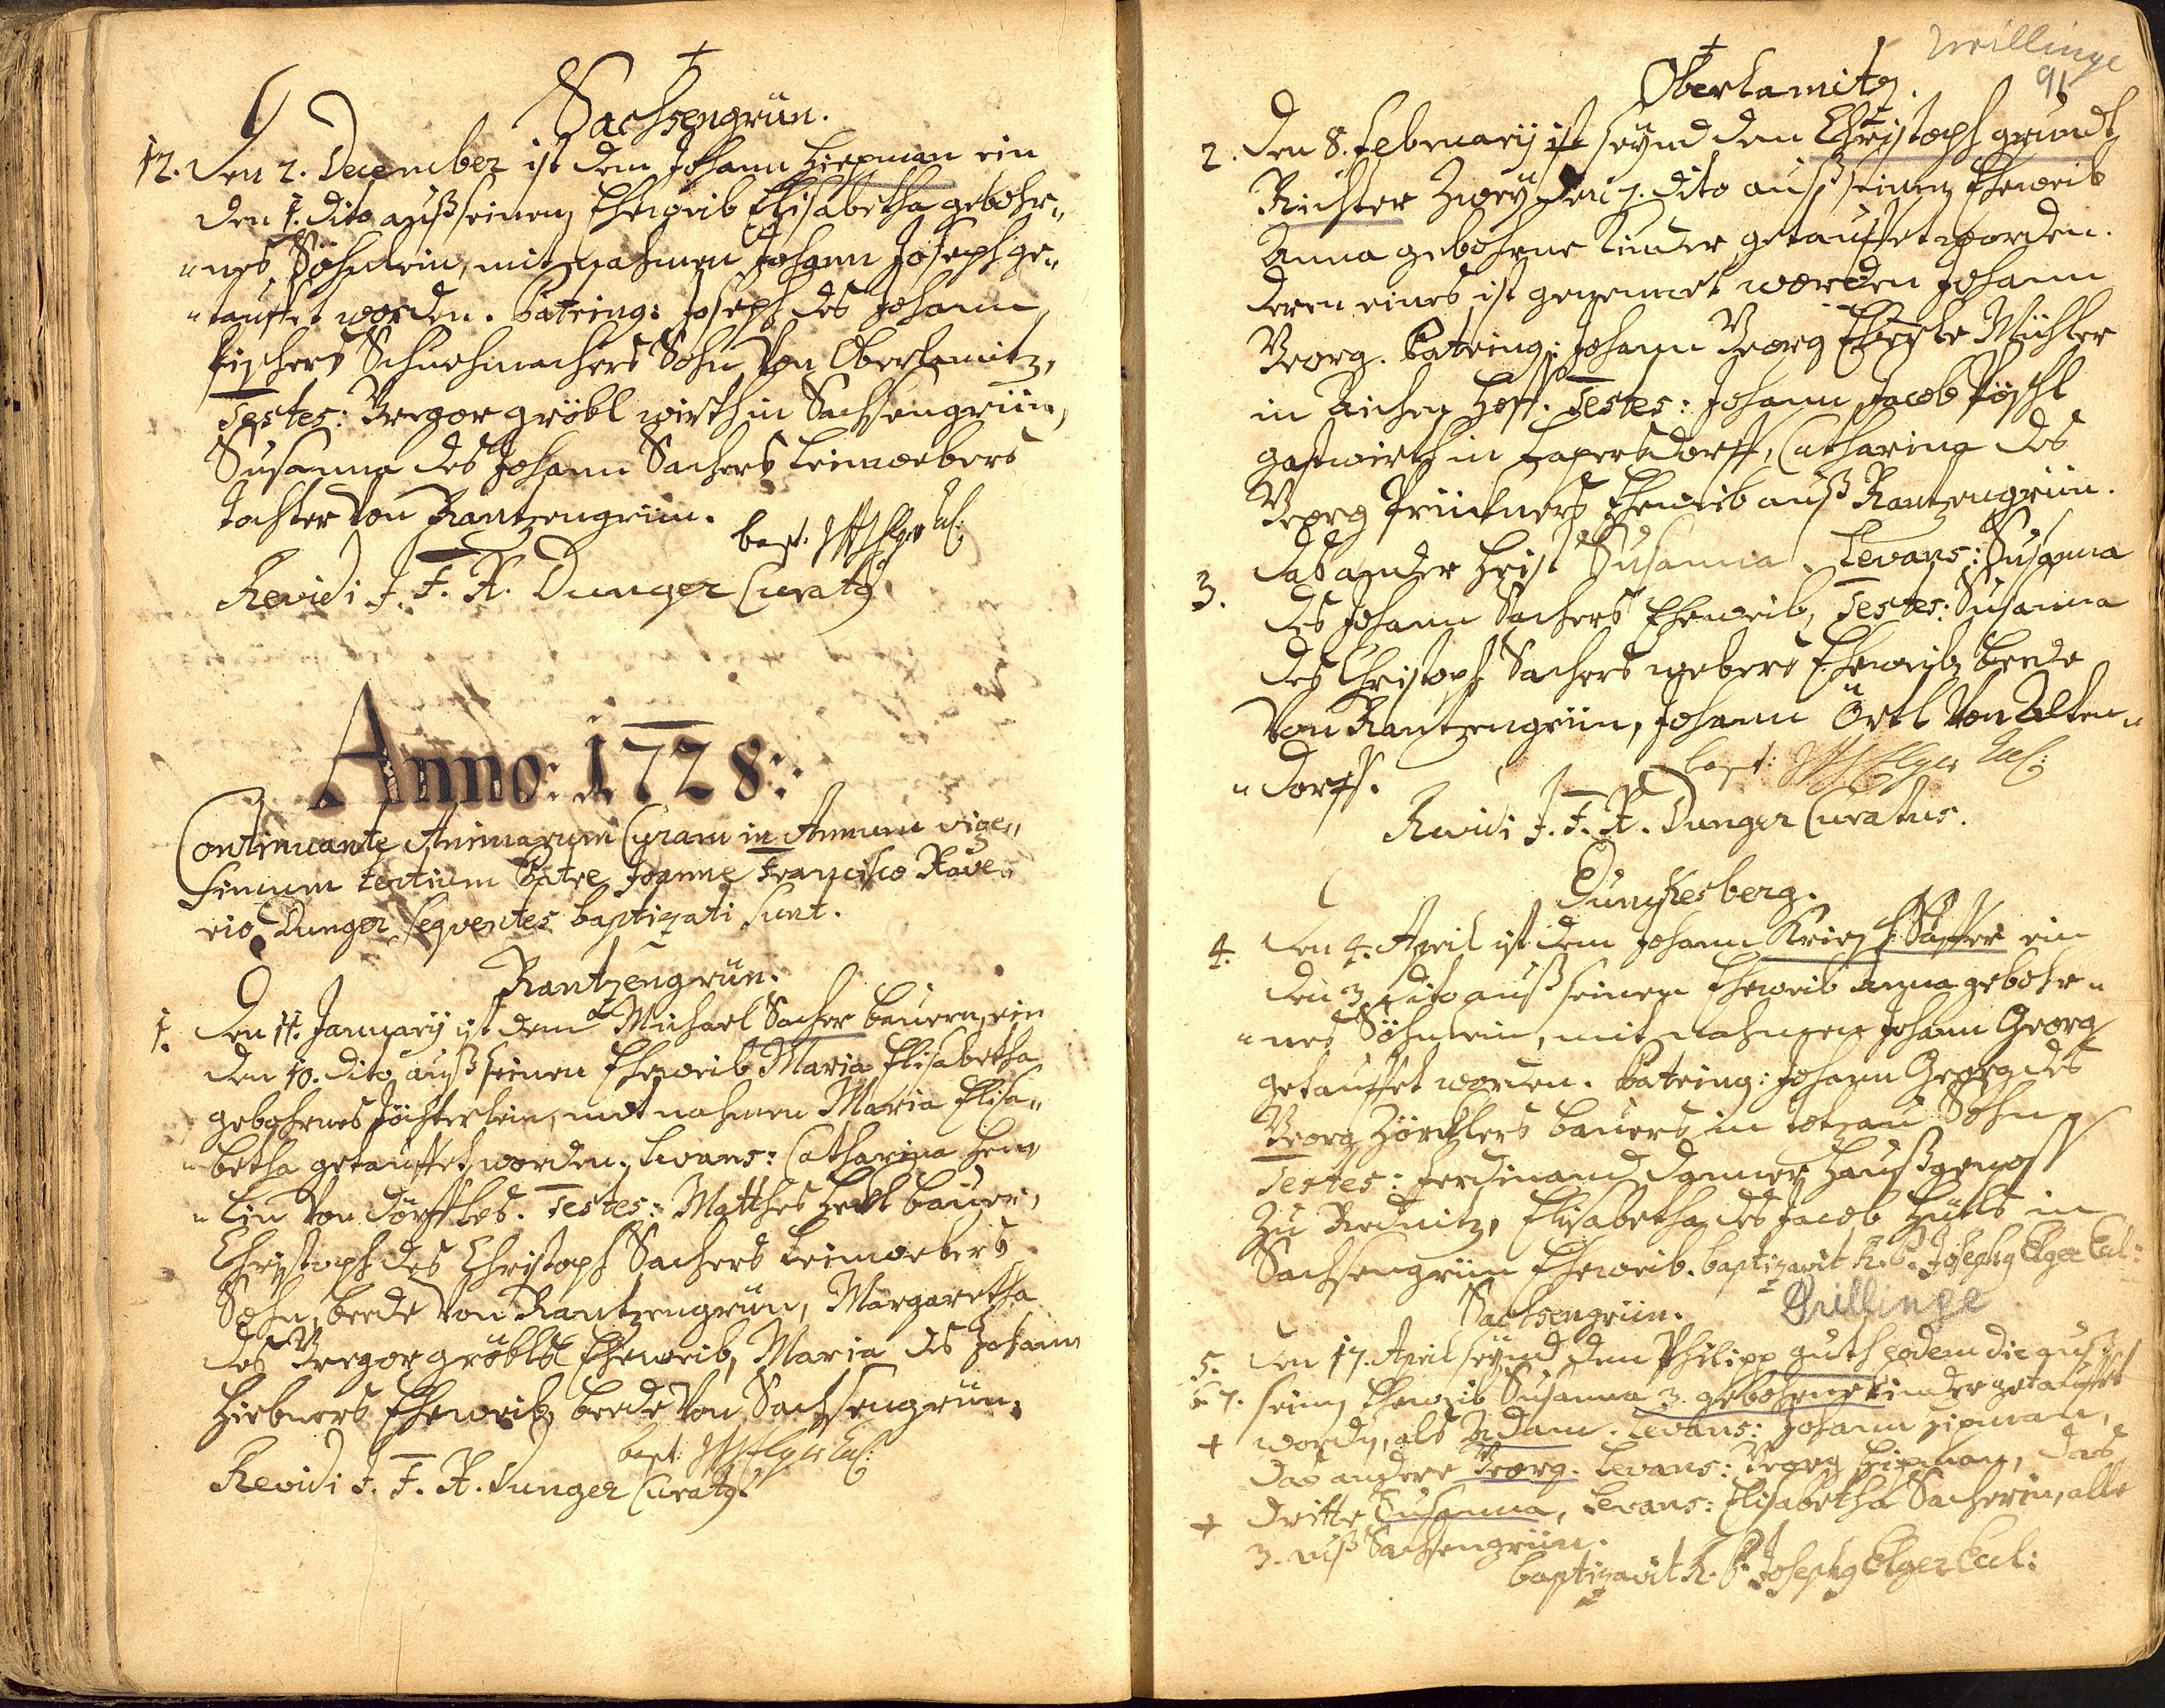 Sachsengrün.
12. Den 2. December ist dem Johann Hiepman ein
den 1. dito auß seinen Eheweib Elisabetha gebohr„
„nes Söhnlein, mit nahmen Johann Joseph ge„
„tauffet worden. Patring: Joseph des Johann
Fischers Schuhmachers Sohn von Oberlamitz,
Testes: Gregor gröbl wirth in Sachsengrün,
Susanna des Johann Sachers Leimwebers
Tochter von Rantzengrün.
bapt.
Revidi J. F. X. Dunger Curatg
Anno: 1728:
Continuante Animarum Curam in Annum vige„
simum tertium Patre Joanne Francisco Xave„
rio Dunger seqventes baptizati sunt.
Rantzengrün.
1. Den 11. Januarÿ ist dem Michael Sacher bauern, ein
den 10. dito auß seinen Eheweib Maria Elisabetha
gebohrnes Töchterlein, mit nahmen Maria Elisa„
„betha getauffet worden. Levans: Catharina Hen„
„lin von Dörffles. Testes: Matthes Heckl bauer,
Christoph des Christoph Sachers Leimwebers
Sohn, beede von Rantzengrün, Margaretha
des Gregor gröbls Eheweib, Maria des Johann
Hiebners Eheweib, beede von Sachsengrün.
bapt: Elger Cul:
Revidi J. F. X. Dunger Curatg.
Zwillinge
91
Oberlamitz.
2. Den 8. Februarÿ ist seÿnd dem Christoph grundt
Richter Zweÿ den 7. dito auß seinen Eheweib
Anna gebohrne Kinder getauffet worden.
deren eines ist genennet worden Johann
Georg. Patring: Johann Georg Eberle Mühler
in Aichen Hoff. Testes: Johann Jacob Pöschl
gastwirth in Lapersdorff, Catharina des
Georg Früchners Eheweib auß Rantzengrün.
3. das ander heist Susanna. Levans: Susanna
des Johann Sachers Eheweib, Testes: Susanna
des Christoph Sachers webers Eheweib beede
von Rantzengrün, Johann Örtl von Alten„
„dorff.
bapt: Elger Cul:
Revidi J. F. X. Dunger Curatus.
Dunckesberg.
4. Den 4. April ist dem Johann Krieg Schaffer ein
den 3. dito auß seinen Eheweib Anna gebohr„
„nes Söhnlein, mit nahmen Johann Georg
getauffet worden. Patring: Johann Georg des
Georg Zörcklers bauers in totzau Sohn
Testes: Ferdinand Danner Haußgenoss
zu Rednitz, Elisabetha des Jacob Hüttls in
Sachsengrün Eheweib. baptizavit R. P. Josephg Elger Cul:
Sachsengrün.
Drillinge
5. Den 17. April seÿnd dem Philipp guth eodem die auß
6. 7. seinen Eheweib Susanna 3. gebohrne Kinder getauffet
+ worden, als Adam. Levans: Johann Hipman,
das andere Georg. Levans: Georg Hipman, das
+ dritte Susanna, Levans: Elisabetha Sacherin, alle
3. auß Sachsengrün.
baptizavit R. P. Josephg Elger Cul: